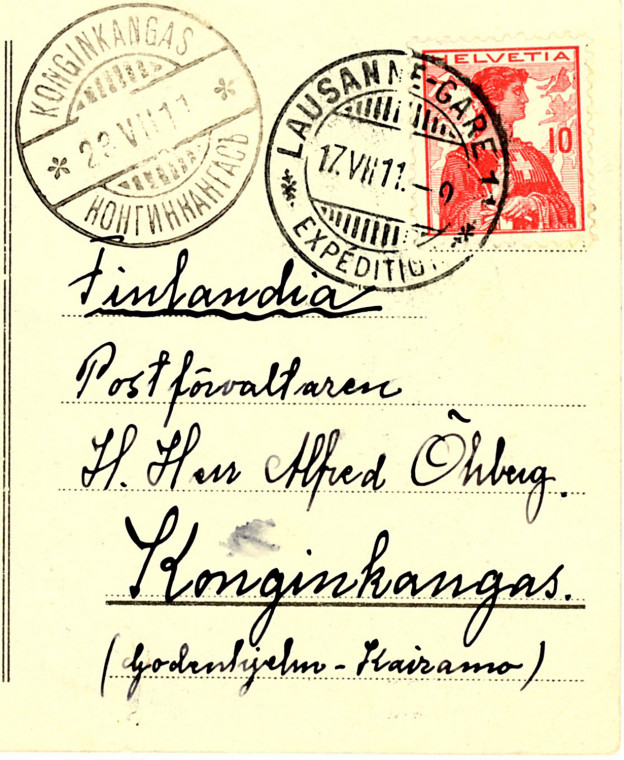 KONGINKANGAS
23.VII.11
КОНГИНКАНГАСЪ
LAUSANNE-GARE 1
17.VII.11.-9
EXPÉDITION
HELVETIA
10
Finlandia
Postförvaltaren
H. Herr Alfred Öhberg.
Konginkangas.
(Godenhjelm-Kairamo)